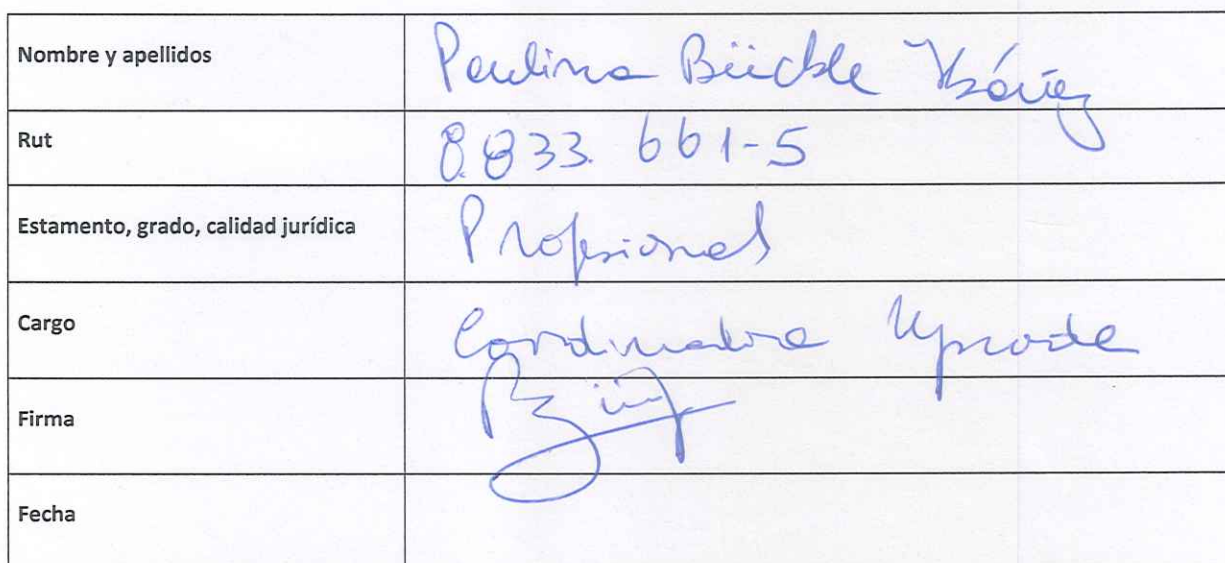 Nombre y apellidos Paulina Bückle Ybáñez
Rut 8.833.661-5
Estamento, grado, calidad jurídica Profesional
Cargo Cordinadora
Firma
Fecha